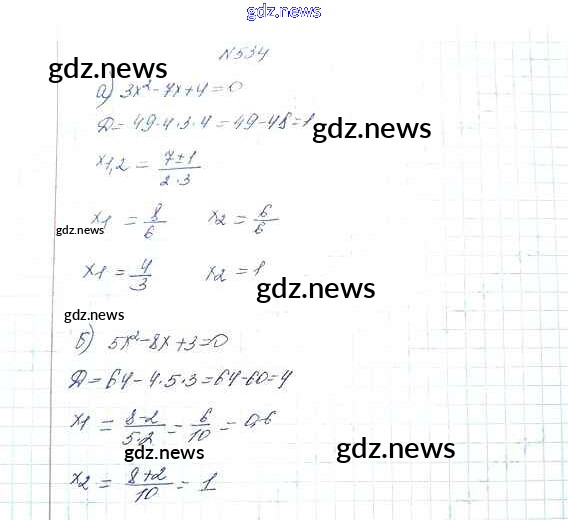 gdz.news
N534
gdz.news
а) 3x²-7x+4=0
Д=49-4·3·4=49-48=1
gdz.news
x1,2 = 7±1 / 2·3
x1 = 8/6 x2 = 6/6
gdz.news
x1 = 4/3 x2 = 1
gdz.news
gdz.news
б) 5x²-8x+3=0
Д=64-4·5·3=64-60=4
x1 = 8-2 / 5·2 = 6/10 = 0,6
gdz.news
gdz.news
x2 = 8+2 / 10 = 1